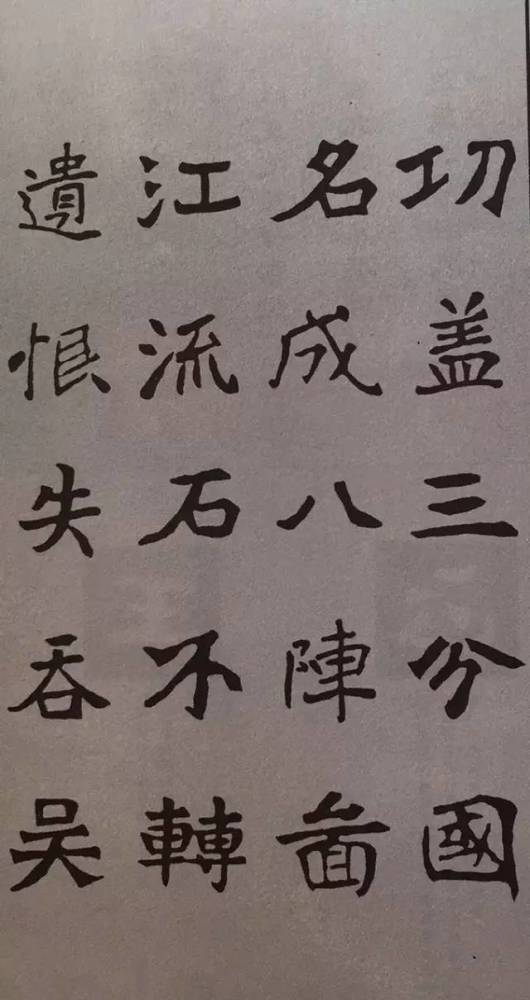 功盖三分國
名成八陣啚
江流石不轉
遺恨失吞吴